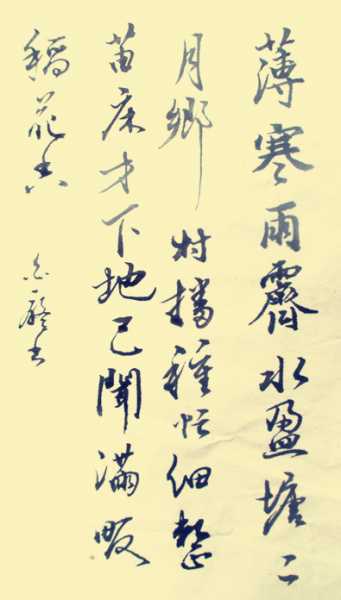 薄寒雨霽水盈塘二
月鄉村播種忙細整
苗床才下地已聞滿畈
稻花香